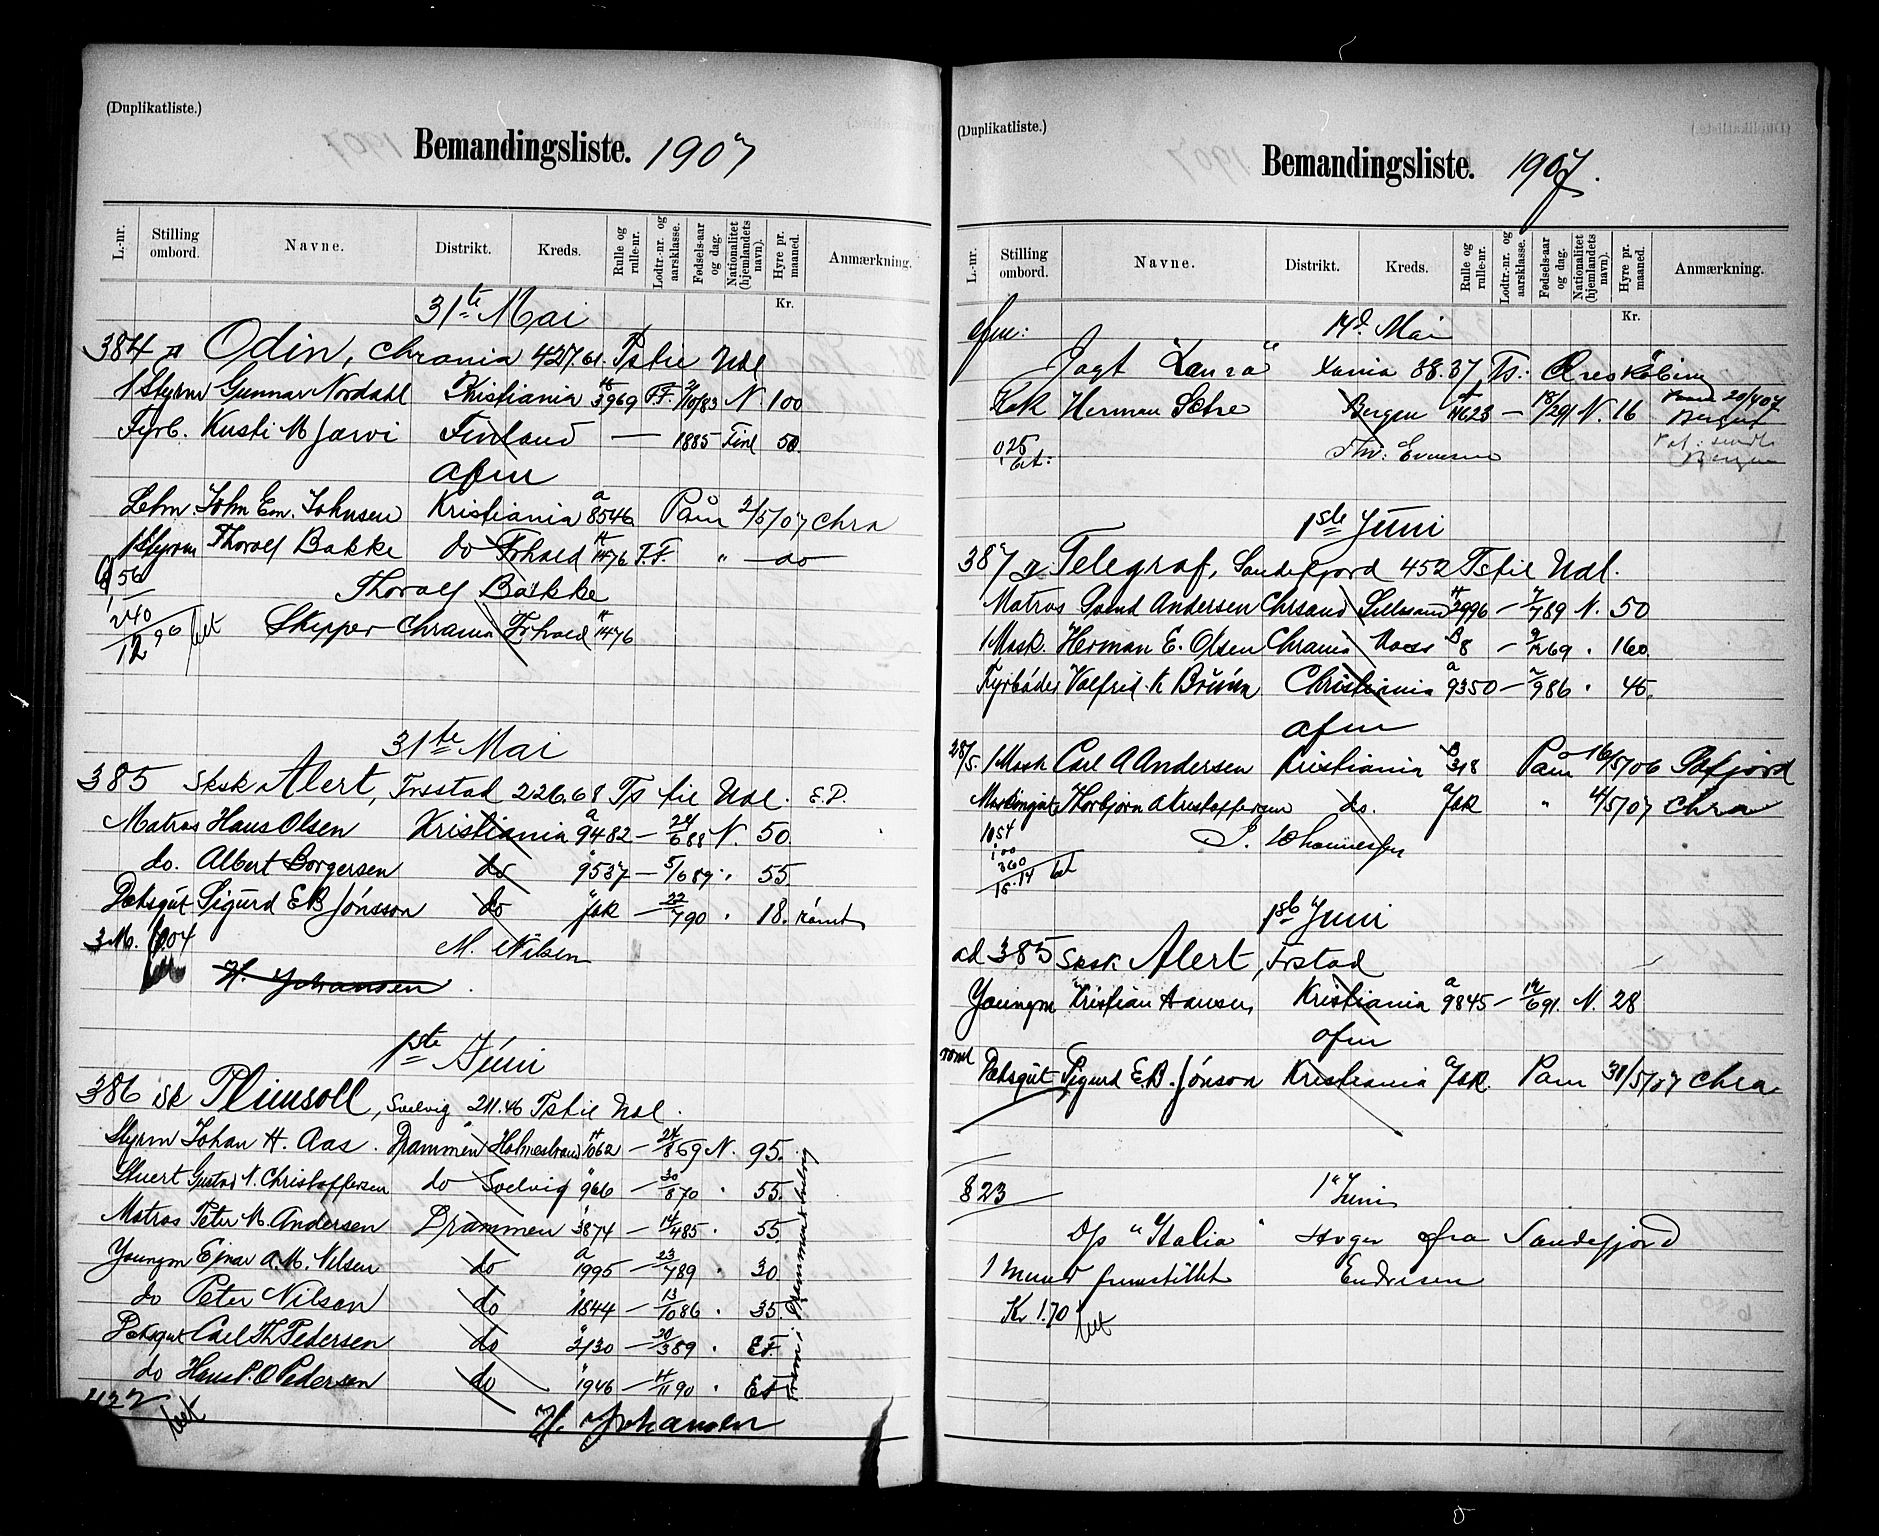 (Duplikatliste.)
Bemandingsliste. 1907
L.-nr. Stilling ombord. Navne. Distrikt. Kreds. Rulle og rulle-nr. Lodtr.-nr. og aarsklasse. Fødsels-aar og dag. Nationalitet (hjemlandets navn). Hyre pr. maaned. Anmærkning.
Kr.
31te Mai
384 Odin, Chrania 427,61. Ts til Udl
1 Styrm Gunnar Nordahl Kristiania 3969 F.F. 10/83 N. 100
Fyrb. Kusti M Jarvi Finland — 1885 Finl 50.
Afm
John Em. Johnsen Kristiania a 8546 Påm 2/5/07 Chra
1 Styrm Thoralf Bakke do Frhald 1476 F.F. " — do
56
Thoralf Bakke
240
Skipper Chrania Frhald 1476
12.96 bet
31te Mai
385 Sksk Alert, Frstad 226.68 Ts til Udl. E.D.
Matros Hans Olsen Kristiania a 9482 — 24/6 88 N. 50.
do. Albert Borgersen do " 9537 — 5/6 89 " 55.
Dæksgut Sigurd E B Jónsson do " JR — 22/7 90 " 18. rømt
3 M. 6.04 M. Nilsen
H. Johansen
1ste Juni
386 Sk Plimsoll, Svelvig 211.46 Ts til Udl.
Styrm Johan H. Aas. Drammen Holmestrand 1062 — 24/8 69 N. 95.
Stuert Gustav N. Christoffersen do Svelvig " 966 — 30/8 70 " 55.
Matros Peter M. Andersen Drammen 3874 — 14/4 85 " 55.
Youngm Ejnar A. M. Nilsen do a 1995 — 23/7 89 " 30
do Peter Nilsen do " 1844 — 13/10 86 " 35.
Dæksgut Carl Th Pedersen do " 2130 — 20/3 89 " E.F.
do Hans P. O Pedersen do " 1946 — 11/11 90 " E.F.
bet H. Johansen
(Duplikatliste.)
Bemandingsliste. 1907.
L.-nr. Stilling ombord. Navne. Distrikt. Kreds. Rulle og rulle-nr. Lodtr.-nr. og aarsklasse. Fødsels-aar og dag. Nationalitet (hjemlandets navn). Hyre pr. maaned. Anmærkning.
Kr.
afm: 14d. Mai
Jagt "Laura" Xania 88.37 Ts: Øreskøbing
Kok Herman Sætre Bergen 11623 — 18/2 91 N. 16 20/4 07 Bergen
0,25 bet: Thv: Evensen Bergen
1ste Juni
387 Telegraf, Sandefjord 452 Ts til Udl.
Matros Svend Andersen Chrsand Lillesand 2996 — 7/7 89 N. 50
1 Mask. Herman E. Olsen Chrania Moss B 8 — 9/12 69 " 160.
Fyrbøder Valfrid K Bruun Christiania a 9350 — 2/9 86 " 45.
afm
28/5. 1 Mask Carl A Andersen Kristiania B 318 Påm 16/5/06 Sfjord
Maskingut Thorbjørn A Kristoffersen do. a/JR " 4/5/07 Chra
1054
100
J. Johannessen
360
15.14 bet
1ste Juni
ad 385 Sksk Alert, Frstad
Youngm Kristian Hansen Kristiania a 9845 — 12/6 91. N. 28
afm
rømt Dæksgut Sigurd E. B. Jónson Kristiania a/JR. Paam 30/5/07 Chra
§ 23 1" Juni
D/s "Italia" Hvger fra Sandefjord
1 Mand fremstillet Endresen
Kr 1.70 bet